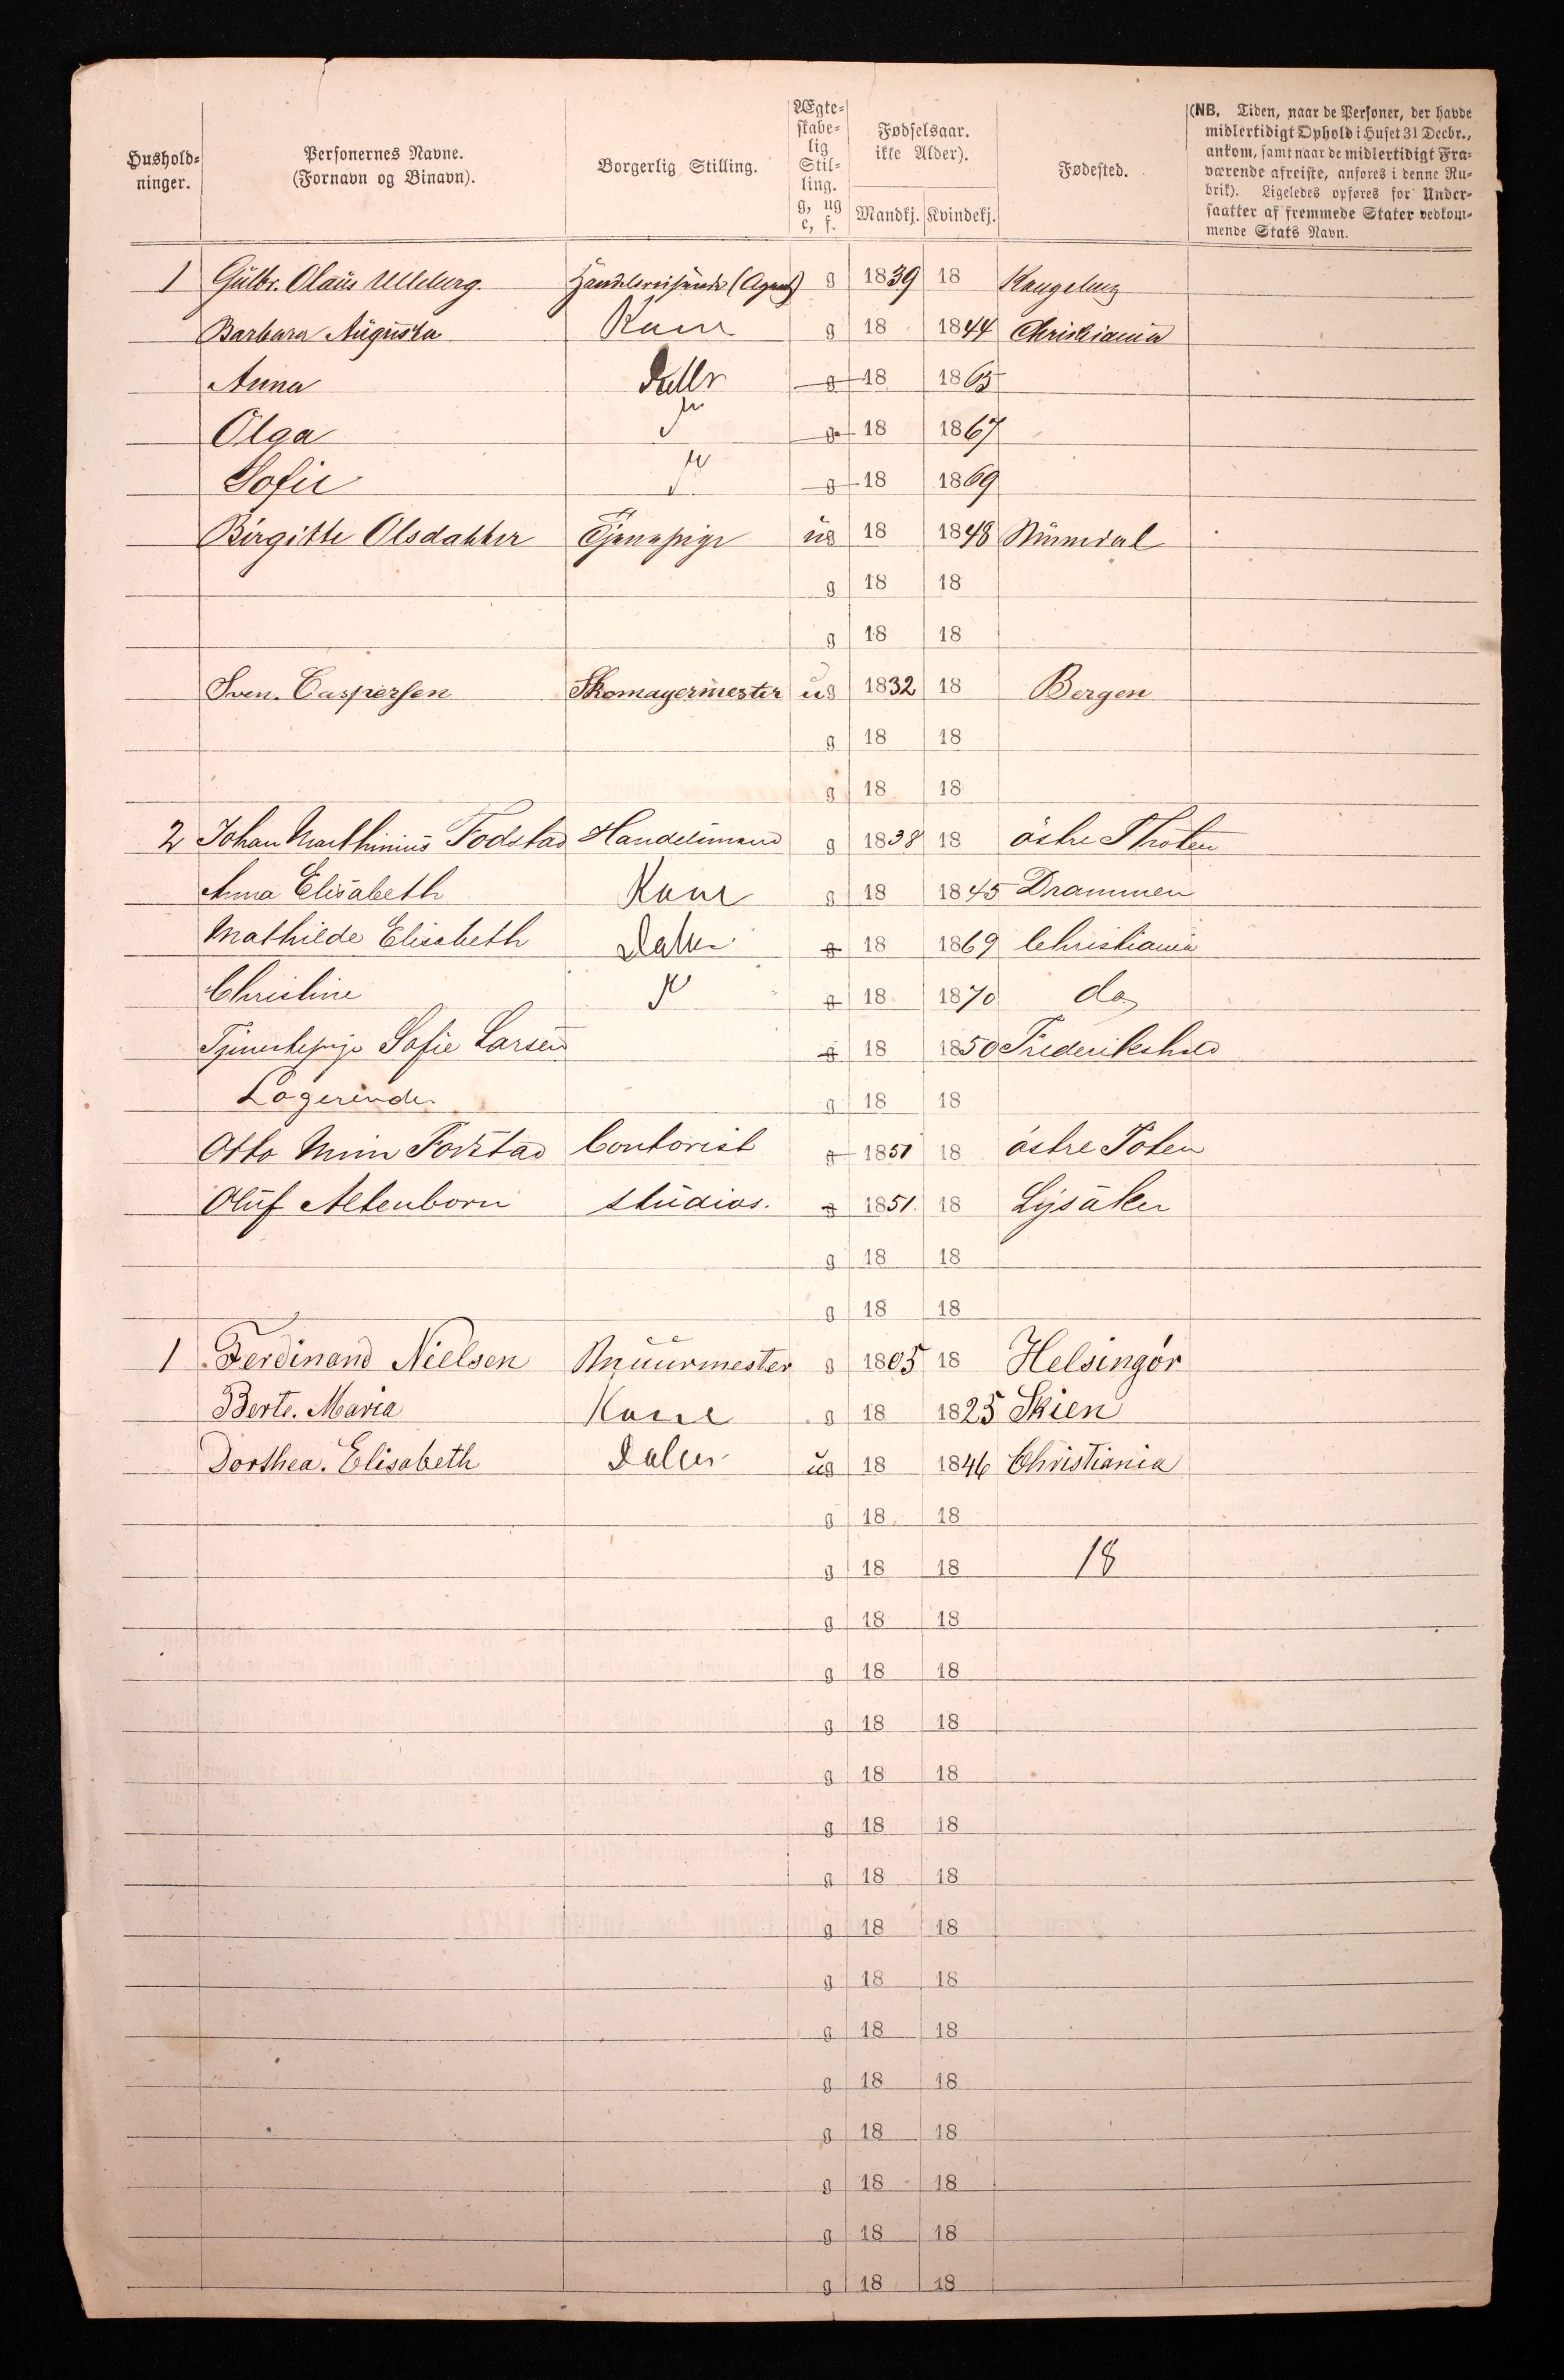 Hushold-
ninger.
Personernes Navne.
(Fornavn og Binavn).
Borgerlig Stilling.
Ægte-
skabe-
lig
Stil-
ling.
g, ug
e, f.
Fødselsaar.
ikke Alder).
Mandkj. Kvindekj.
Fødested.
(NB. Tiden, naar de Personer, der havde
midlertidigt Ophold i Huset 31 Decbr.,
ankom, samt naar de midlertidigt Fra-
værende afreiste, anføres i denne Ru-
brik). Ligeledes opføres for Under-
saatter af fremmede Stater vedkom-
mende Stats Navn.
1 Gulbr. Olaus Ulleberg. Handelsreisende (Agent) g 1839 18
Barbara Augusta Kone g 18 1844 Christiania
Anna g 18 1865
Olga g 18 1867
Sofie g 18 1869
Birgitte Olsdatter Tjenepige ug 18 1848 Nummedal
g 18 18
g 18 18
Sven. Caspersen Skomagermester ug 1832 18 Bergen
g 18 18
g 18 18
2 Johan Marthinius Fodstad Handelsmand g 1838 18 østre Thoten
Anna Elisabeth Kone g 18 1845 Drammen
Mathilde Elisabeth Datter g 18 1869 Christiania
Christine g 18 1870 do
Tjenestepige Sofie Larsen g 18 1850 Frederikshald
Logerende g 18 18
Otto Fodstad Contorist g 1851 18 østre Toten
Oluf Altenborn studios. g 1851. 18 Lysaker
g 18 18
g 18 18
1 Ferdinand Nielsen Muurmester g 1805 18 Helsingør
Berte. Maria Kone g 18 1825 Skien
Dorthea. Elisabeth Datter ug 18 1846 Christiania
g 18 18
g 18 18 18
g 18 18
g 18 18
g 18 18
g 18 18
g 18 18
g 18 18
g 18 18
g 18 18
g 18 18
g 18 18
g 18 18
g 18 18
g 18 18
g 18 18